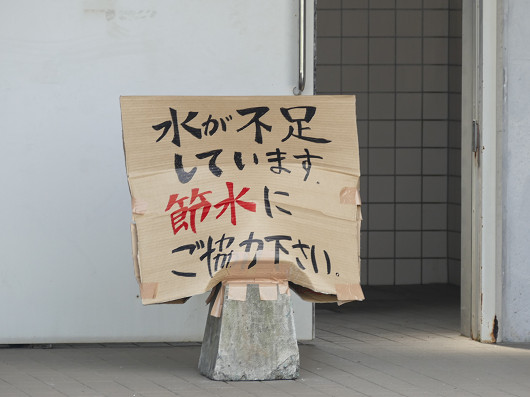 水が不足
しています.
節水に
ご協力下さい。